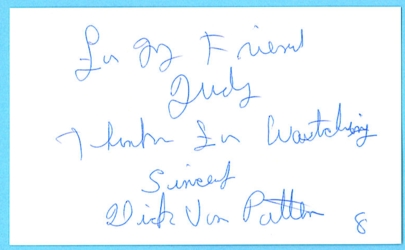 For my Friend
Judy
Thanks for Watching
Sincerely
Dick Van Patten
8